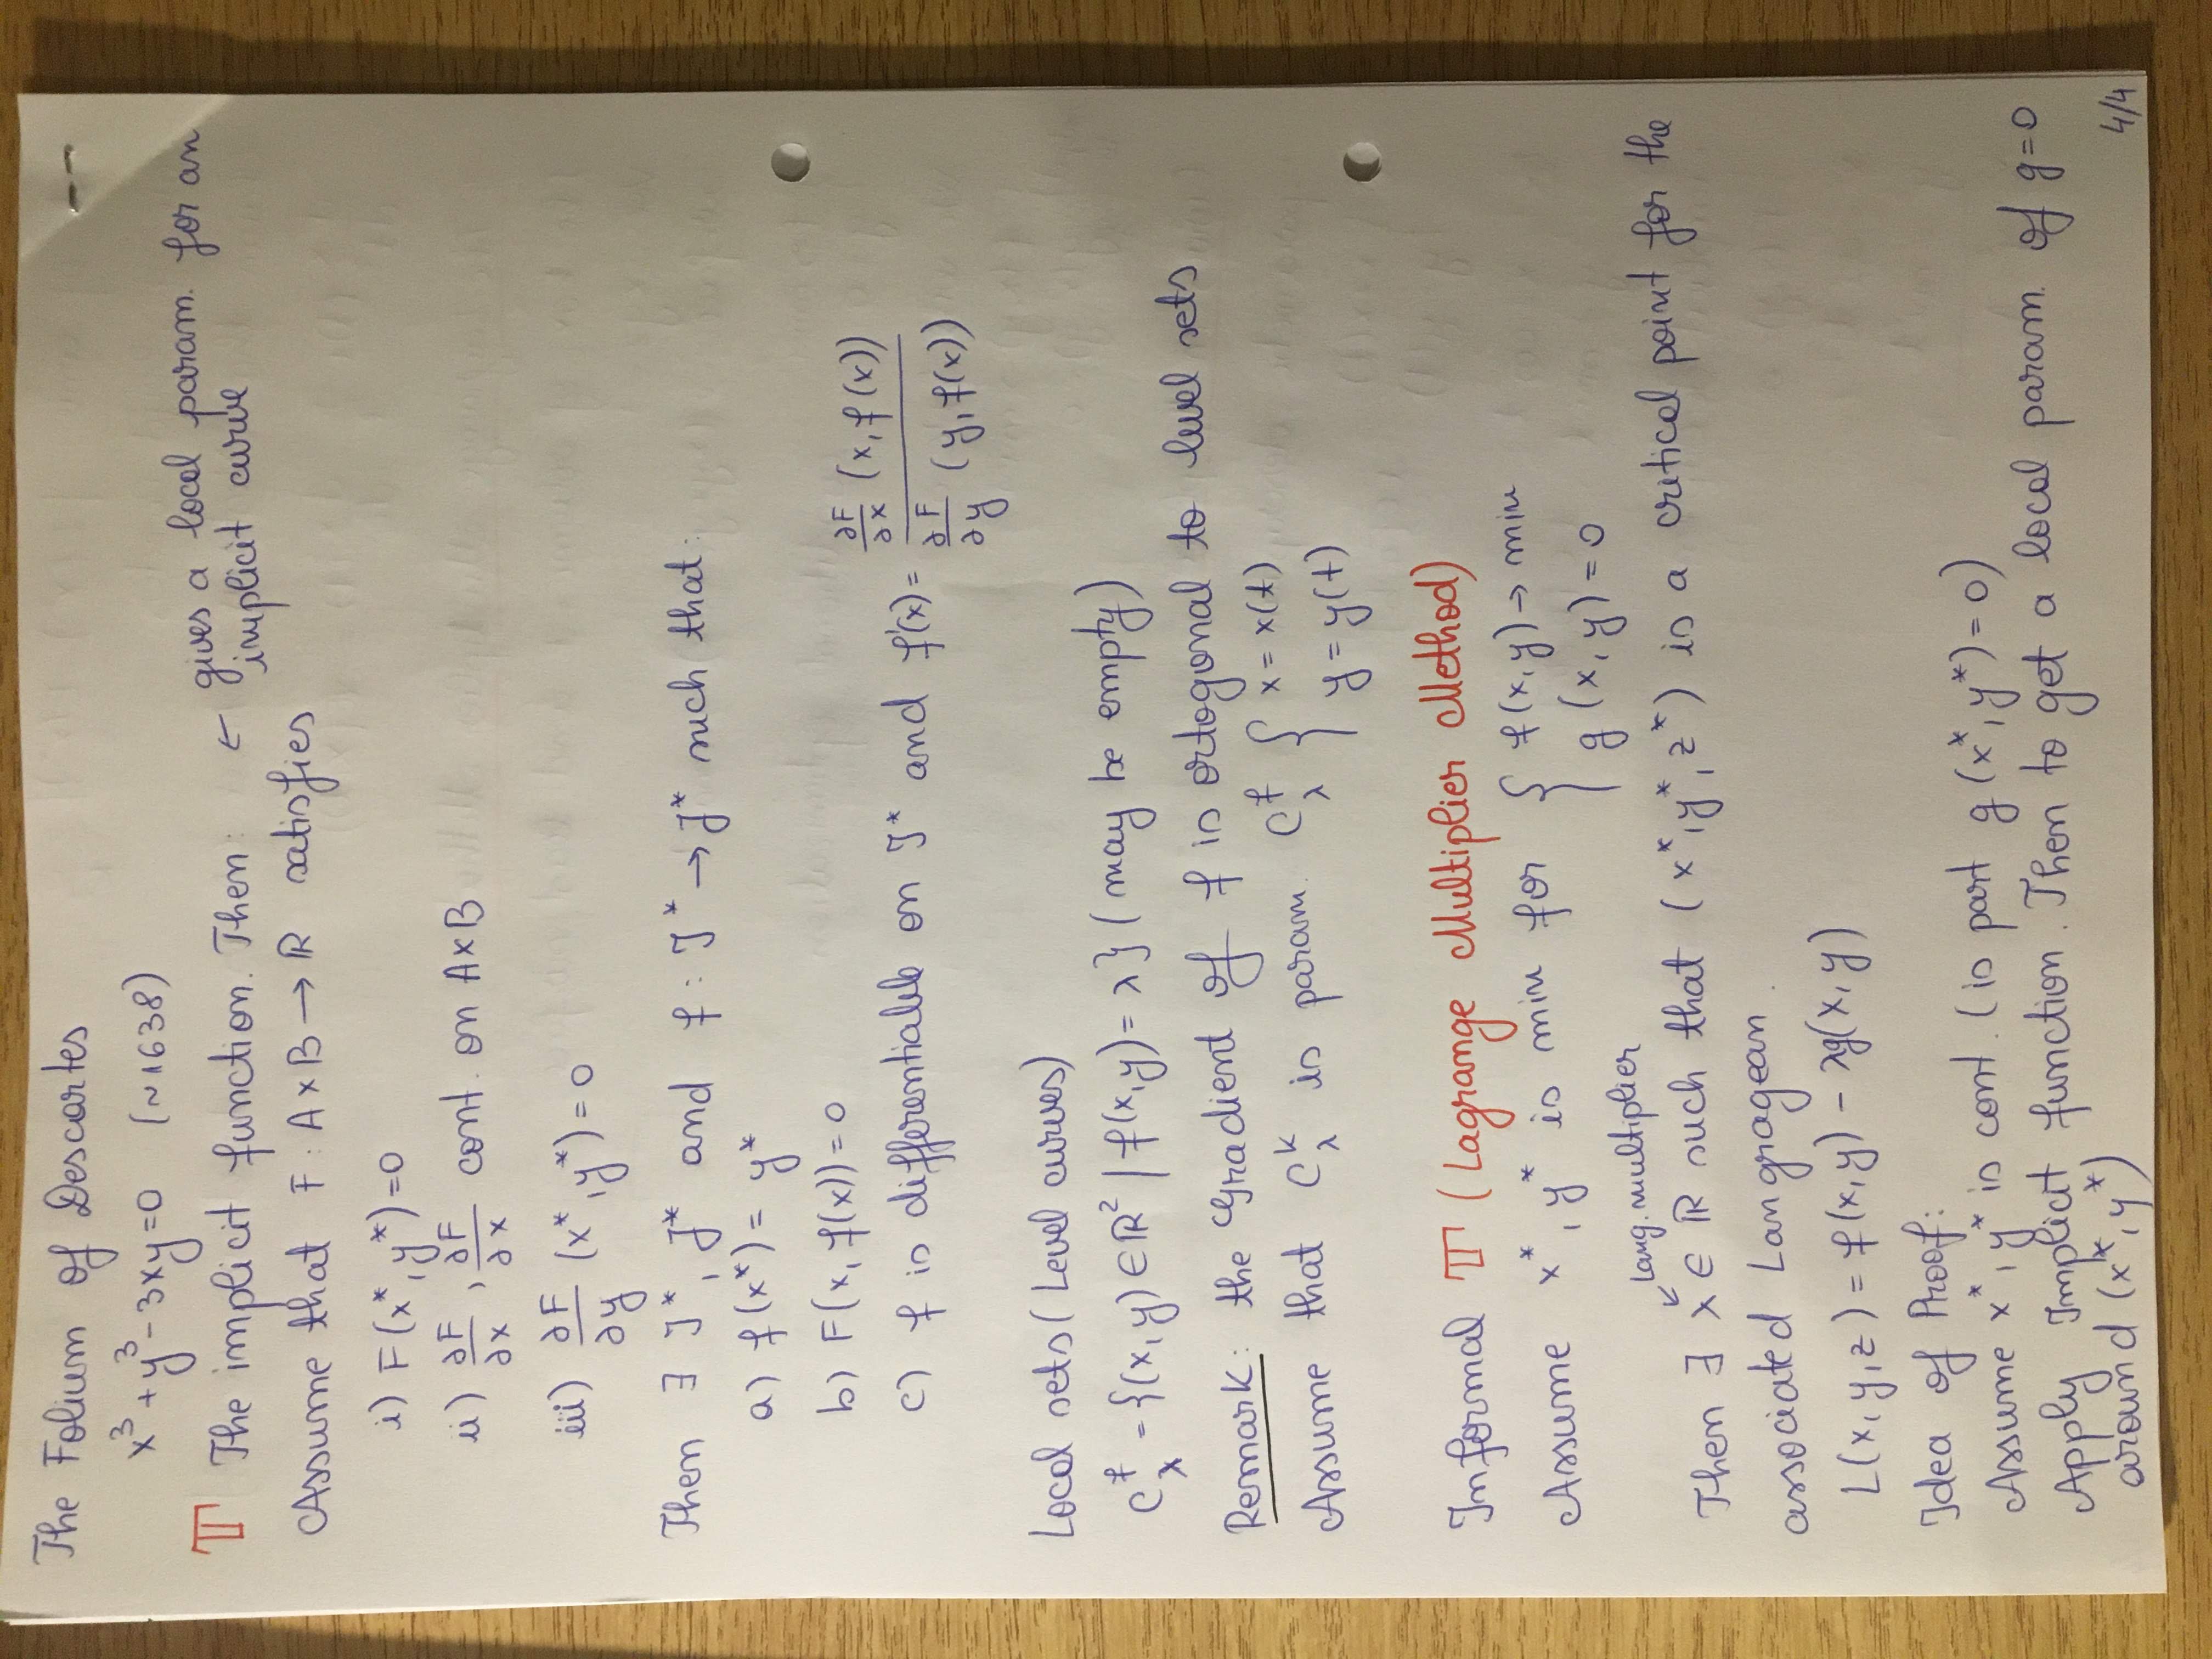 The Folium of Descartes
x³+y³-3xy=0 (~1638)
T The implicit function. Then: ← gives a local param. for an
implicit curve
Assume that F : A×B → ℝ satisfies
i) F(x*, y*)=0
ii) ∂F/∂x , ∂F/∂x cont. on A×B
iii) ∂F/∂y (x*, y*) = 0
Then ∃ I*, J* and f : I* → J* such that:
a) f(x*) = y*
b) F(x, f(x)) = 0
c) f is differentiable on I* and f'(x) = ∂F/∂x (x, f(x)) / ∂F/∂y (y, f(x))
Local sets (Level curves)
C_λ^f = {(x, y) ∈ ℝ² | f(x, y) = λ} (may be empty)
Remark: the Gradient of f is ortogonal to level sets
Assume that C_λ^k is param. C_λ^f { x = x(t)
y = y(t)
Informal T (Lagrange Multiplier Method)
Assume x*, y* is min for { f(x, y) → min
g(x, y) = 0
Lang. multiplier
Then ∃ λ ∈ ℝ such that (x*, y*, z*) is a critical point for the
associated Langragean.
L(x, y, z) = f(x, y) - λg(x, y)
Idea of Proof:
Assume x*, y* is cont. (is part g(x*, y*) = 0)
Apply Implicit function. Then to get a local param. of g=0
around (x*, y*)
4/4